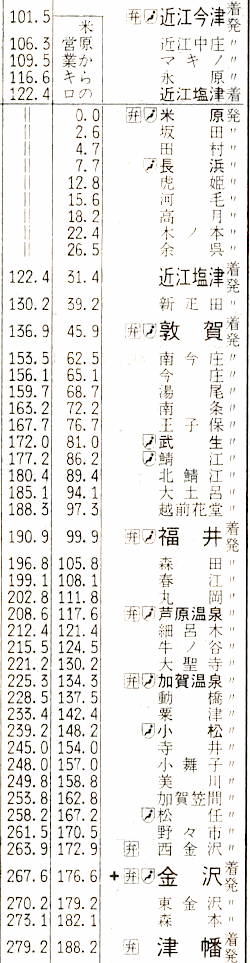 101.5 弁 近江今津 着発
営業キロ 米原からの
106.3 近江中庄 〃
109.5 マキノ 〃
116.6 永原 〃
122.4 近江塩津 着
‖ 0.0 弁 米原 発
‖ 2.6 坂田 〃
‖ 4.7 田村 〃
‖ 7.7 長浜 〃
‖ 12.8 虎姫 〃
‖ 15.6 河毛 〃
‖ 18.2 高月 〃
‖ 22.4 木ノ本 〃
‖ 26.5 余呉 〃
122.4 31.4 近江塩津 着発
130.2 39.2 新疋田 〃
136.9 45.9 弁 敦賀 着発
153.5 62.5 南今庄 〃
156.1 65.1 今庄 〃
159.7 68.7 湯尾 〃
163.2 72.2 南条 〃
167.7 76.7 王子保 〃
172.0 81.0 武生 〃
177.2 86.2 鯖江 〃
180.4 89.4 北鯖江 〃
185.1 94.1 大土呂 〃
188.3 97.3 越前花堂 〃
190.9 99.9 弁 福井 着発
196.8 105.8 森田 〃
199.1 108.1 春江 〃
202.8 111.8 丸岡 〃
208.6 117.6 弁 芦原温泉 〃
212.4 121.4 細呂木 〃
215.5 124.5 牛ノ谷 〃
221.2 130.2 大聖寺 〃
225.3 134.3 弁 加賀温泉 〃
228.5 137.5 動橋 〃
233.4 142.4 粟津 〃
239.2 148.2 小松 〃
245.0 154.0 寺井 〃
248.0 157.0 小舞子 〃
249.8 158.8 美川 〃
253.8 162.8 加賀笠間 〃
258.2 167.2 松任 〃
261.5 170.5 野々市 〃
263.9 172.9 弁 西金沢 〃
267.6 176.6 + 弁 金沢 着発
270.2 179.2 東金沢 〃
273.1 182.1 森本 〃
279.2 188.2 弁 津幡 着発